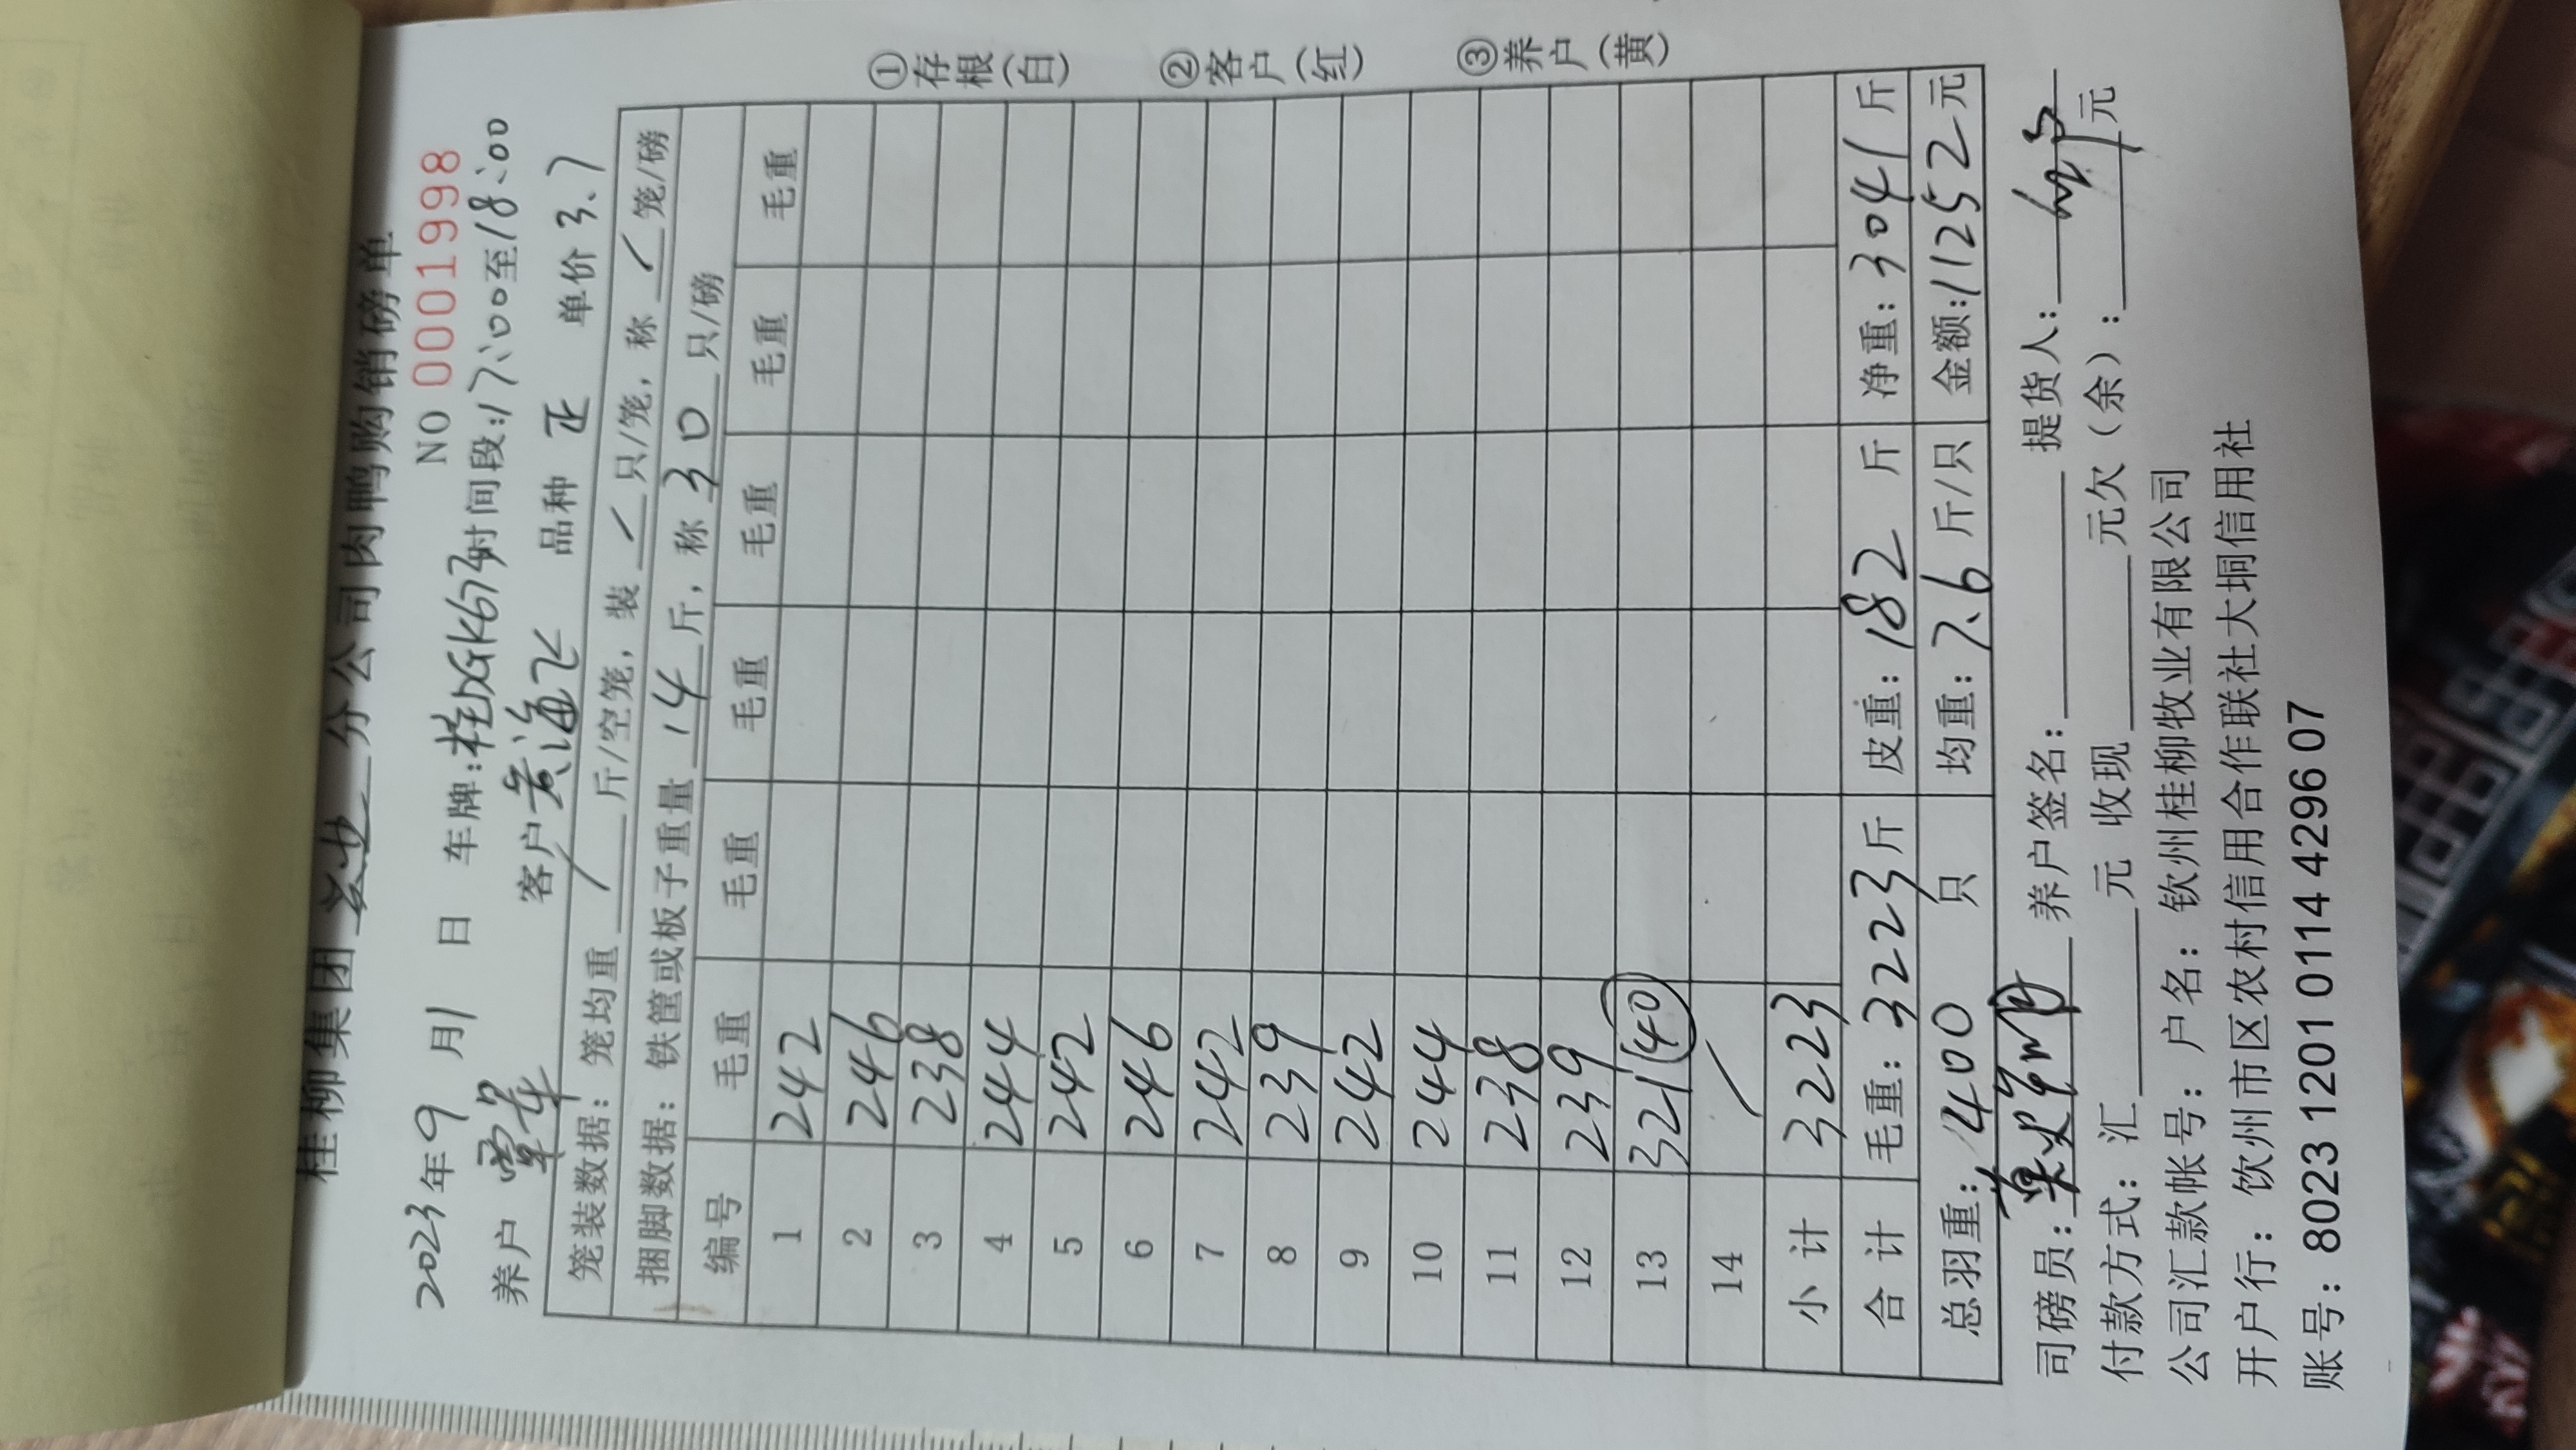 桂柳集团 分公司肉鸭购销磅单
NO 0001998
2023年9月1日 车牌:桂DGK673 时间段:17:00至18:00
养户 覃军 客户 黄海飞 品种 正 单价 3.7
笼装数据：笼均重 / 斤/空笼，装 / 只/笼，称 / 笼/磅
捆脚数据：铁筐或板子重量 14 斤，称 30 只/磅
编号 毛重 毛重 毛重 毛重 毛重 毛重
1 242
2 246
3 238
4 244
5 242
6 246
7 242
8 239
9 242
10 244
11 238
12 239
13 321 (40)
14 /
小计 3223
合计 毛重：3223斤 皮重：182 斤 净重：3041斤
总羽重：400 只 均重：7.6 斤/只 金额：11252元
司磅员： 养户签名： 提货人：
付款方式：汇 元 收现 元欠（余）： 元
公司汇款帐号：户名：钦州桂柳牧业有限公司
开户行：钦州市区农村信用合作联社大垌信用社
账号：8023 1201 0114 4296 07
①存根(白) ②客户(红) ③养户(黄)